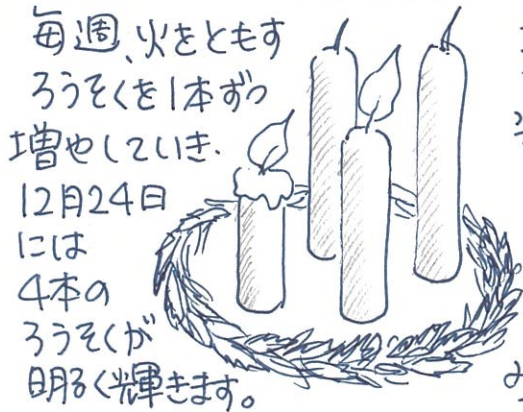 毎週、火をともす
ろうそくを1本ずつ
増やしていき、
12月24日
には
4本の
ろうそくが
明るく輝きます。